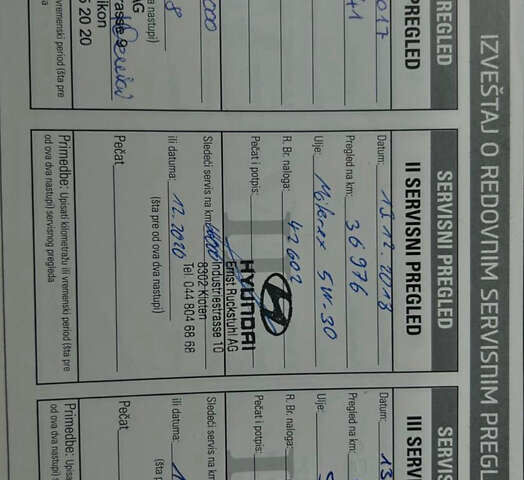 IZVEŠTAJ O REDOVNIM SERVISNIM PREGL
PREGLED
PREGLED
017
+1
000
a nastupi)
8
AG
rasse 9
ikon
5 20 20
vremenski period (šta pre
SERVISNI PREGLED
II SERVISNI PREGLED
Datum: 13.12.2018
Pregled na km: 36976
Ulje: 5W-30
R. Br. naloga: 42602
Pečat i potpis:
HYUNDAI
Ernst Ruckstuhl AG
Industriestrasse 10
8302 Kloten
Tel. 044 804 68 68
Sledeći servis na km
ili datuma: 12.2020
(šta pre od ova dva nastupi)
Pečat
Primedbe: Upisati kilometražu ili vremenski period (šta pre
od ova dva nastupi) servisnog pregleda
SERVIS
III SERV
Datum: 13
Pregled na km:
Ulje:
R. Br. naloga:
Pečat i potpis:
Sledeći servis na km
ili datuma: 1
(šta p
Pečat
Primedbe: Upisa
od ova dva nastup